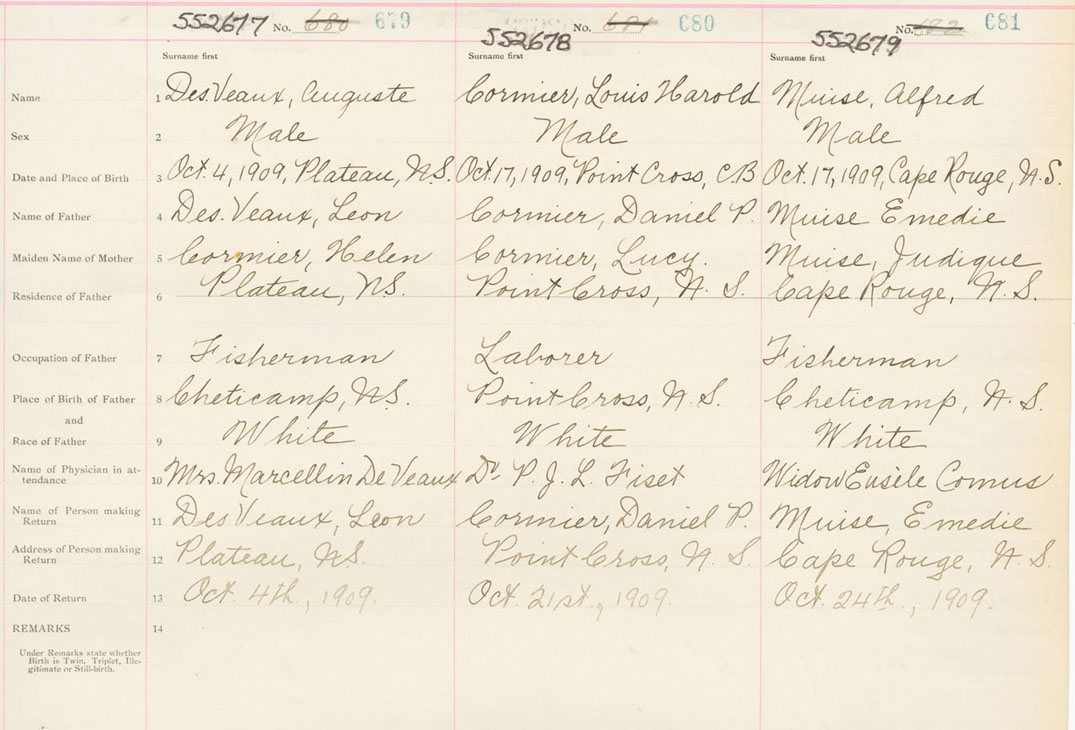 552677 No. 680 679 No. 681 680 No. 682 681
552678 552679
Surname first Surname first Surname first
Name 1 Des.Veaux, Auguste Cormier, Louis Harold Muise, Alfred
Sex 2 Male Male Male
Date and Place of Birth 3 Oct. 4, 1909, Plateau, N.S. Oct. 17, 1909, Point Cross, C.B Oct. 17, 1909, Cape Rouge, N.S.
Name of Father 4 Des. Veaux, Leon Cormier, Daniel P. Muise Emedie
Maiden Name of Mother 5 Cormier, Helen Cormier, Lucy. Muise, Judique
Residence of Father 6 Plateau, N.S. Point Cross, N. S. Cape Rouge, N. S.
Occupation of Father 7 Fisherman Laborer Fisherman
Place of Birth of Father 8 Cheticamp, N.S. Point Cross, N. S. Cheticamp, N. S.
and
Race of Father 9 White White White
Name of Physician in at-
tendance 10 Mrs. Marcellin De Veaux Dr P. J. L. Fiset Widow Eusèle Comus
Name of Person making
Return 11 Des Veaux, Leon Cormier, Daniel P. Muise, Emedie
Address of Person making
Return 12 Plateau, N.S. Point Cross, N. S. Cape Rouge, N. S.
Date of Return 13 Oct. 4th, 1909. Oct. 21st., 1909. Oct. 24th., 1909.
REMARKS 14
Under Remarks state whether
Birth is Twin, Triplet, Ille-
gitimate or Still-birth.